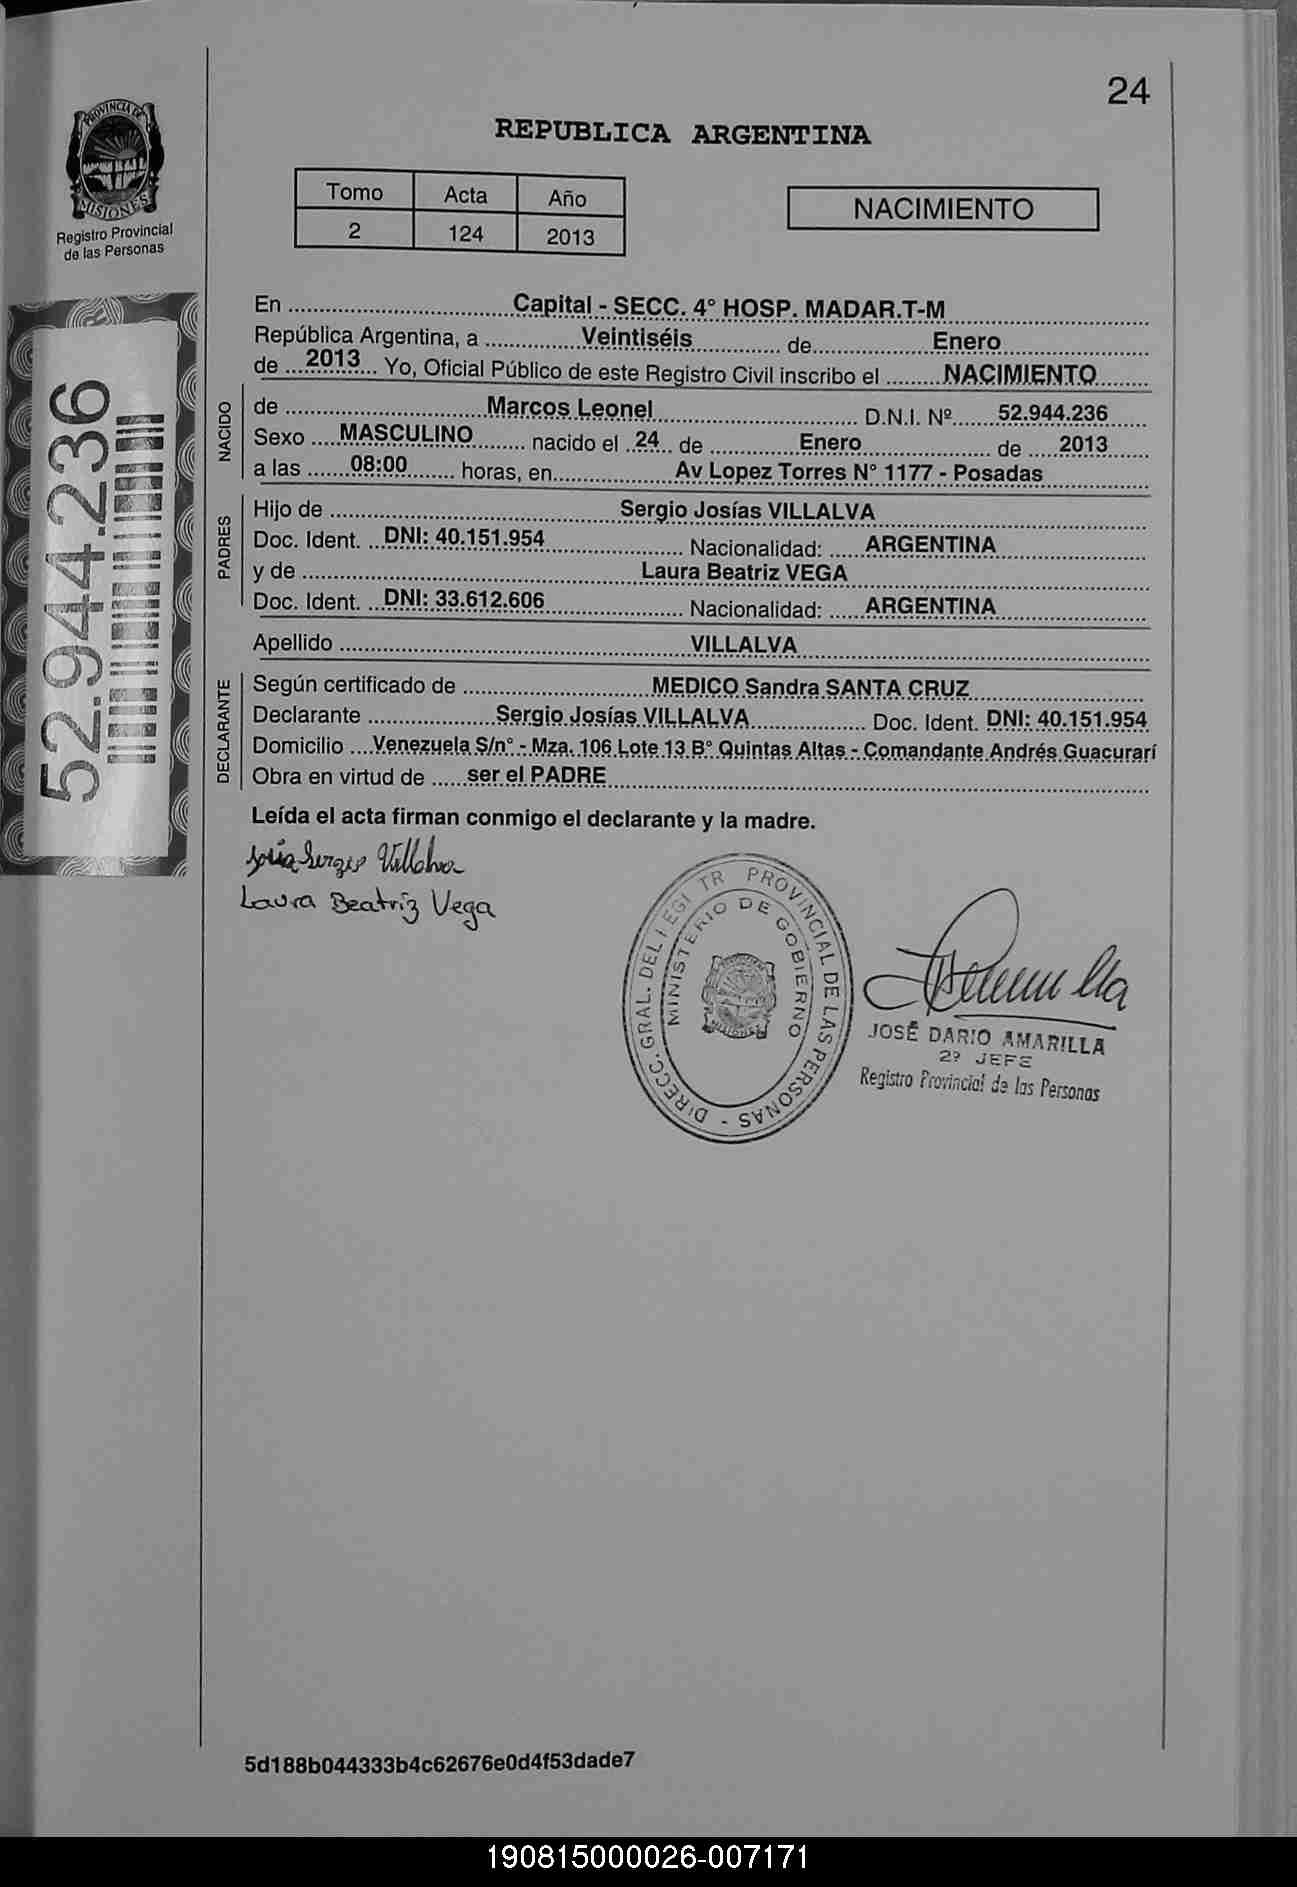 24
PROVINCIA DE
MISIONES
Registro Provincial
de las Personas
REPUBLICA ARGENTINA
Tomo Acta Año
2 124 2013
NACIMIENTO
52.944.236
En ..................................Capital - SECC. 4° HOSP. MADAR.T-M..............................
República Argentina, a ...............Veintiséis............. de..................Enero......................
de ...2013... Yo, Oficial Público de este Registro Civil inscribo el .........NACIMIENTO........
NACIDO
de ..............................Marcos Leonel............................... D.N.I. Nº.......52.944.236......
Sexo ....MASCULINO........ nacido el ..24.. de .............Enero................... de .....2013......
a las ......08:00....... horas, en..................Av Lopez Torres N° 1177 - Posadas................
PADRES
Hijo de ............................................Sergio Josías VILLALVA..........................................
Doc. Ident. ...DNI: 40.151.954..................... Nacionalidad: .....ARGENTINA......................
y de ...................................................Laura Beatriz VEGA..............................................
Doc. Ident. ...DNI: 33.612.606..................... Nacionalidad: .....ARGENTINA......................
Apellido .....................................................VILLALVA.....................................................
DECLARANTE
Según certificado de ............................MEDICO Sandra SANTA CRUZ..........................
Declarante ...................Sergio Josías VILLALVA................. Doc. Ident. DNI: 40.151.954
Domicilio ....Venezuela S/n° - Mza. 106 Lote 13 B° Quintas Altas - Comandante Andrés Guacurarí
Obra en virtud de ......ser el PADRE.................................................................................
Leída el acta firman conmigo el declarante y la madre.
Josía Sergio Villalva
Laura Beatriz Vega
DIRECC. GRAL. DEL REGISTR PROVINCIAL DE LAS PERSONAS -
MINISTERIO DE GOBIERNO
MISIONES
JOSÉ DARIO AMARILLA
2º JEFE
Registro Provincial de las Personas
5d188b044333b4c62676e0d4f53dade7
190815000026-007171